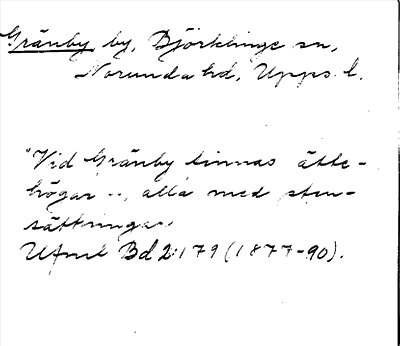 Gränby by, Björklinge sn,
Norunda hd, Upps. l.
"Vid Gränby finnas ätte-
högar .., alla med sten-
sättningar.
UFmt Bd 2:179 (1877-90).